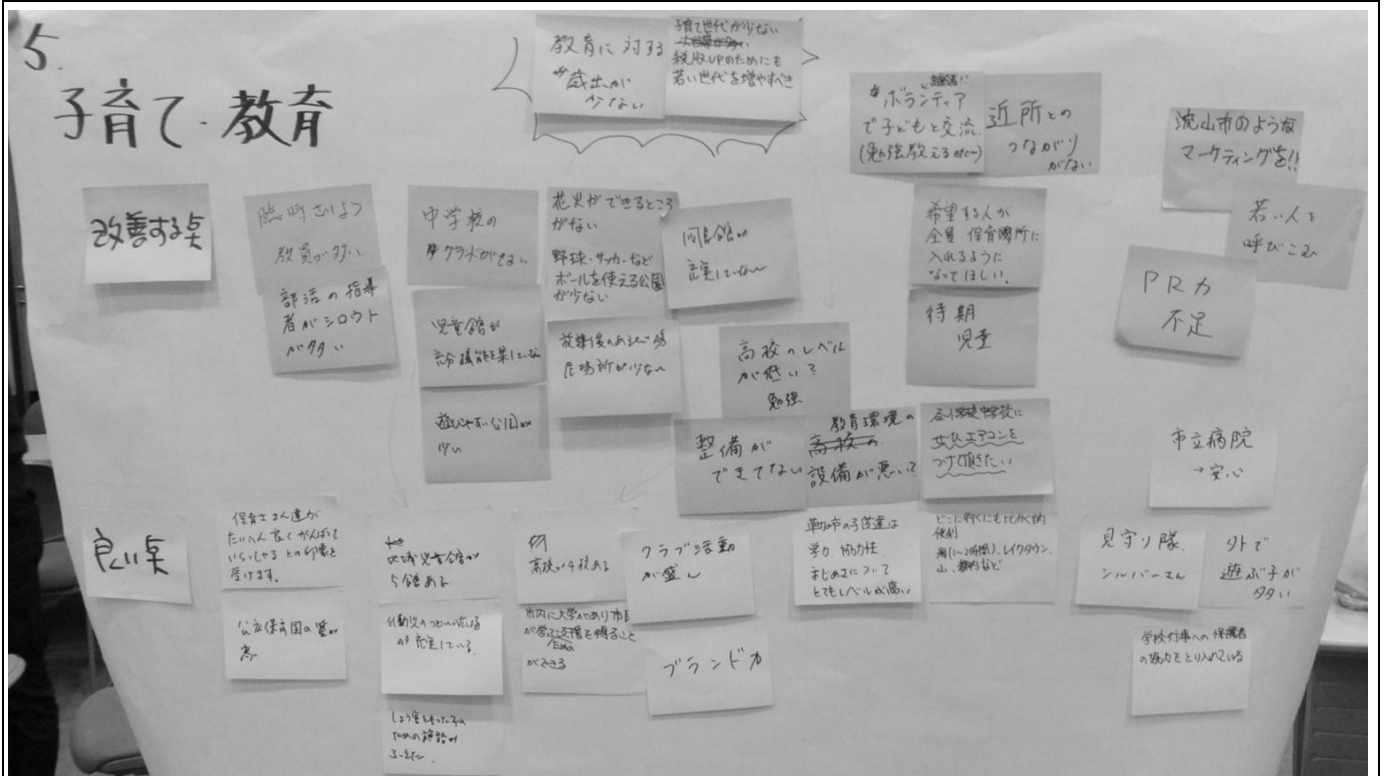 5.
子育て・教育
教育に対する
歳出が
少ない
子育て世代が少ない
税収UPのためにも
若い世代を増やすべき
ボランティア
で子どもと交流
(勉強教えるetc…)
近所との
つながり
がない
流山市のような
マーケティングを!!
若い人を
呼びこむ
PR力
不足
改善する点
教員が多い
部活の指導
者がシロウト
が多い
中学校の
児童館が
充分機能を果していない
遊びやすい公園が
少い
花火ができるところ
がない
野球・サッカーなど
ボールを使える公園
が少ない
居場所が少ない
高校のレベル
が低い?
勉強
整備が
できてない
教育環境の
高校の
設備が悪い?
希望する人が
全員 保育園所に
入れるように
なってほしい。
待期
児童
エアコンを
つけて頂きたい
市立病院
→安心
良い点
保育士さん達が
たいへん良くがんばって
いらっしゃる との印象を
受けます。
公立保育園の質が
高い
地域児童館が
5館ある
が充実している。
ための施設が
ふえた。
高校が4校ある
市内に大学があり市民
ができる
クラブ活動
が盛ん
ブランド力
草加市の子供達は
学力、協力性、
まじめさについて
とてもレベルが高い
どこに行くにもとにかく
便利
海(1~2時間)、レイクタウン、
山、都内など
見守り隊、
シルバーさん
外で
遊ぶ子が
多い
学校行事への保護者
の協力をとり入れている